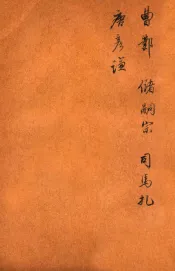 曹鄴 儲嗣宗 司馬札
唐彥謙